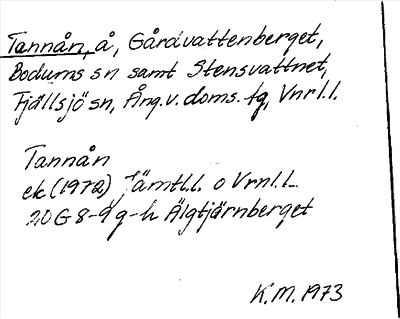 Tannån, å, Gårdvattenberget,
Bodums sn samt Stensvattnet,
Fjällsjö sn, Ång.v.doms.tg, Vnrl.l.
Tannån
ek (1972) Jämtl.l. o Vrnl.l.
20G 8-9 g-h Älgtjärnberget
K.M. 1973